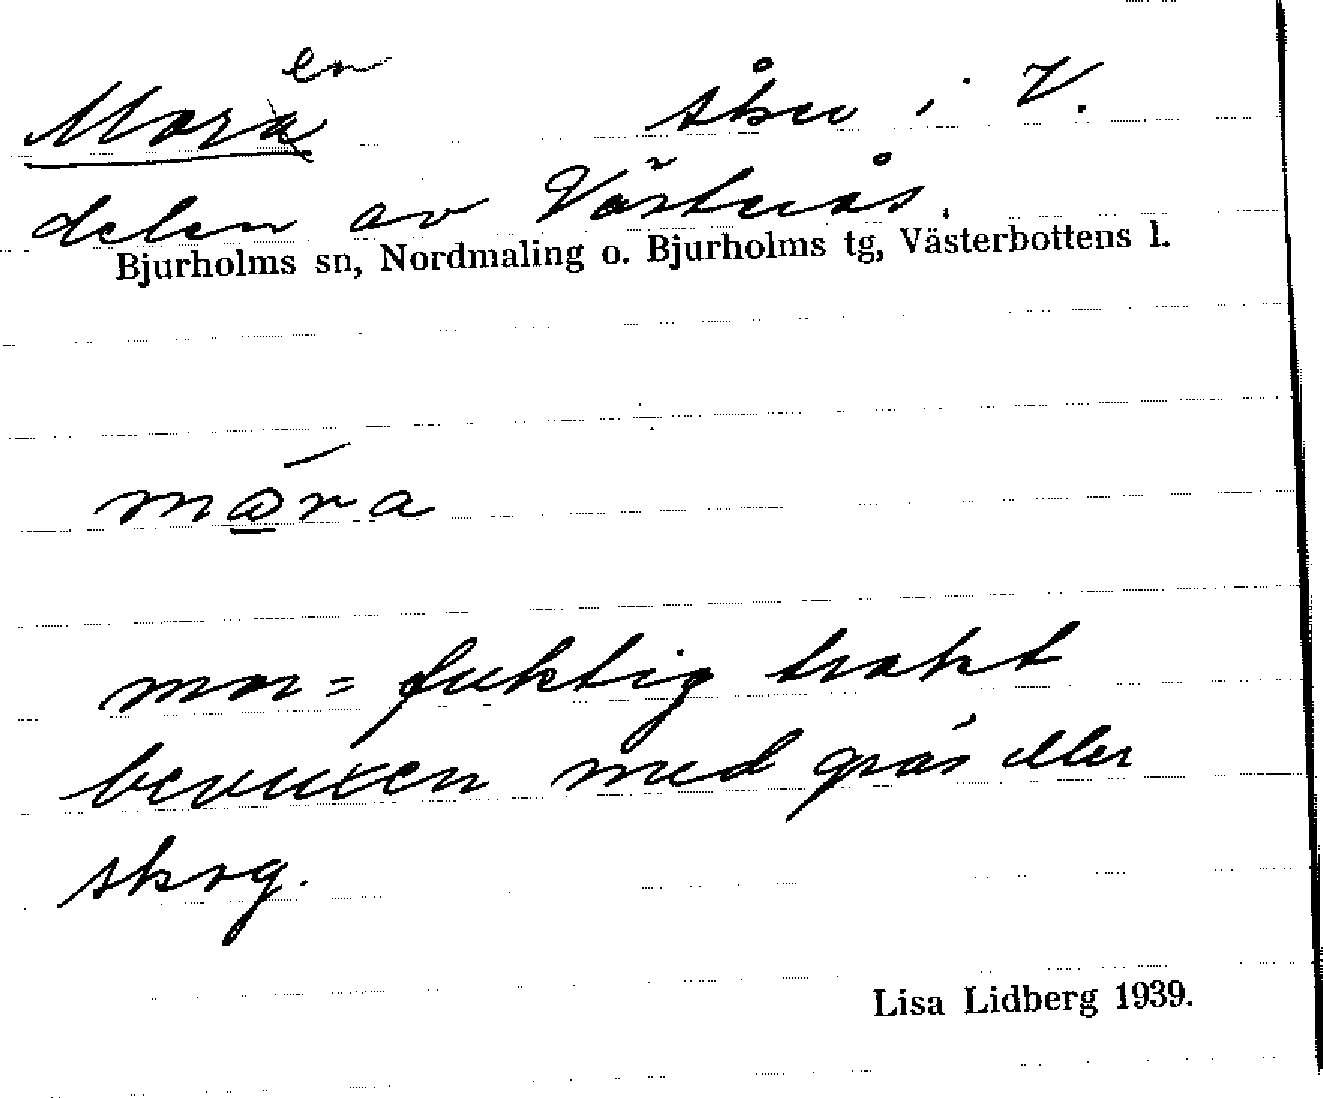 en
Mora åker i V.
delen av Västerås.
Bjurholms sn, Nordmaling o. Bjurholms tg, Västerbottens l.
mör̄a
mor = fuktig trakt
bevuxen med gräs eller
skog.
Lisa Lidberg 1939.